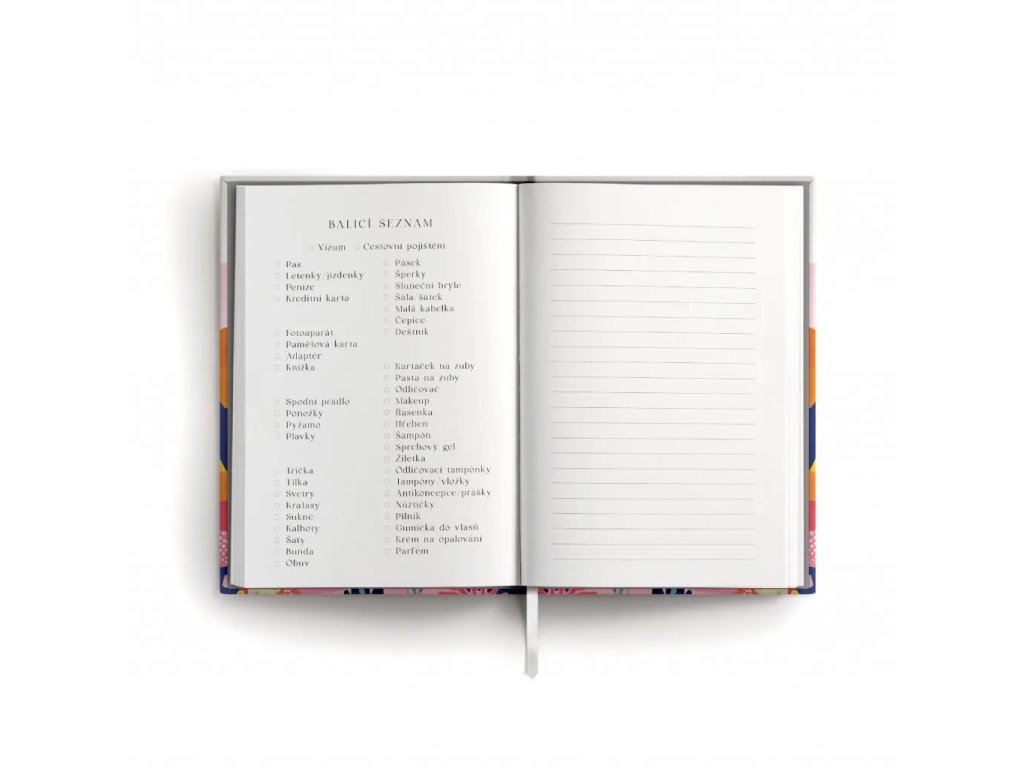 BALICÍ SEZNAM
Vízum Cestovní pojištění
Pas
Letenky/jízdenky
Peníze
Kreditní karta
Fotoaparát
Paměťová karta
Adaptér
Knížka
Spodní prádlo
Ponožky
Pyžamo
Plavky
Trička
Tílka
Svetry
Kraťasy
Sukně
Kalhoty
Šaty
Bunda
Obuv
Pásek
Šperky
Sluneční brýle
Šála/šátek
Malá kabelka
Čepice
Deštník
Kartáček na zuby
Pasta na zuby
Odličovač
Makeup
Řasenka
Hřeben
Šampón
Sprchový gel
Žiletka
Odličovací tampónky
Tampóny/vložky
Antikoncepce/prášky
Nůžtičky
Pilník
Gumička do vlasů
Krém na opalování
Parfém